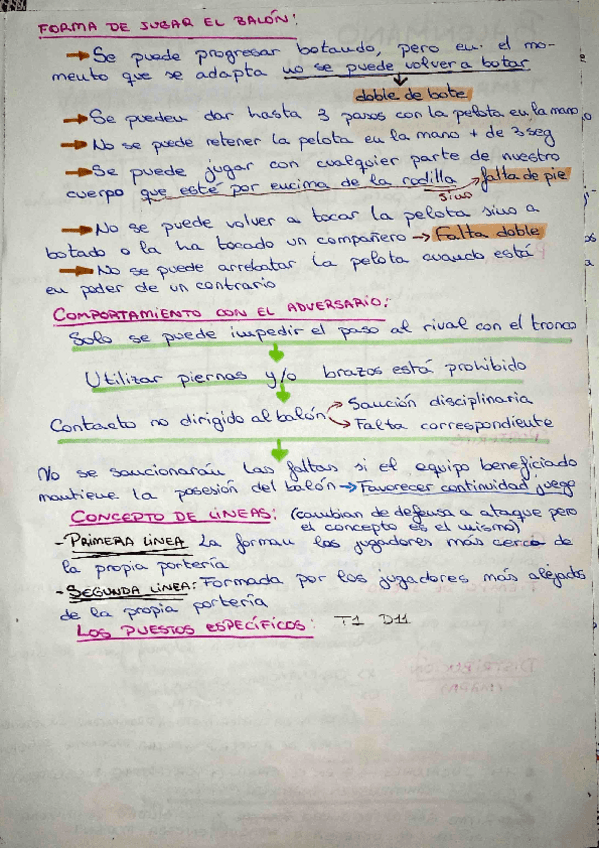 FORMA DE JUGAR EL BALÓN:
→ Se puede progresar botando, pero en el mo-
mento que se adapta no se puede volver a botar
doble de bote
→ Se pueden dar hasta 3 pasos con la pelota en la mano
→ No se puede retener la pelota en la mano + de 3 seg
→ Se puede jugar con cualquier parte de nuestro
cuerpo que esté por encima de la rodilla → falta de pie
sino
→ No se puede volver a tocar la pelota sino a
botado o la ha tocado un compañero → Falta doble
→ No se puede arrebatar la pelota cuando está
en poder de un contrario
COMPORTAMIENTO CON EL ADVERSARIO:
Solo se puede impedir el paso al rival con el tronco
Utilizar piernas y/o brazos está prohibido
Contacto no dirigido al balón → Sanción disciplinaria
→ Falta correspondiente
No se sancionarán las faltas si el equipo beneficiado
mantiene la posesión del balón → Favorecer continuidad juego
CONCEPTO DE LÍNEAS: (cambian de defensa a ataque pero
el concepto es el mismo)
- PRIMERA LÍNEA La forman los jugadores más cerca de
la propia portería
- SEGUNDA LÍNEA: Formada por los jugadores más alejados
de la propia portería
LOS PUESTOS ESPECÍFICOS: T1 D11